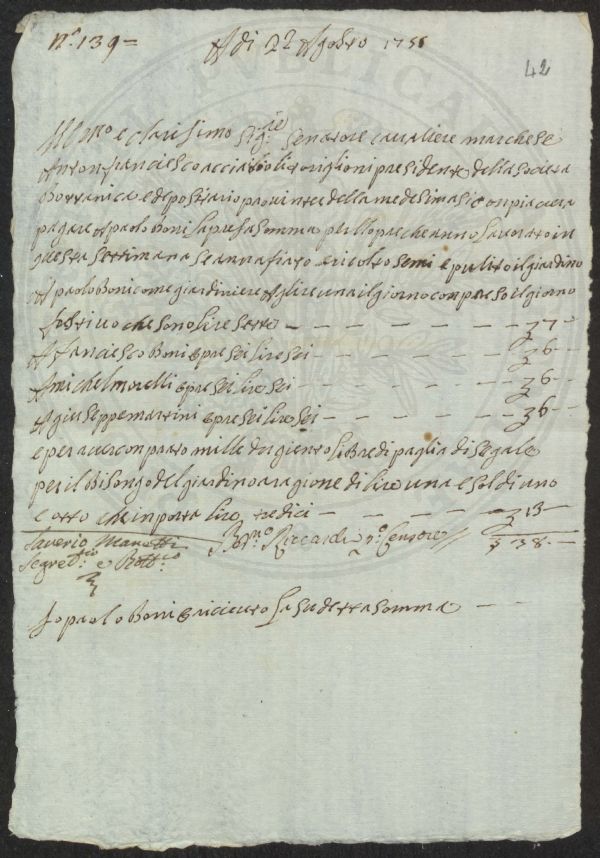 n.° 139 =
A di 22 Agosto 1756
42
Ill.mo e clarisimo Sig.re Senatore cavaliere marchese
Antonfranciesco acciaioli toriglioni presidente della Societa
Bottanica e depositario pro interi della medesima Si conpiacera
pagare A paolo Boni la presa Somma p ll opre che anno lavorato in
questa Settimana Se annafiato e ricolto Semi e pulito il giardino
A paolo Boni come giardiniere A lire una il giorno conpreso il giorno
festivo che sono lire sette — — — — — — 7 —
A franciesco Boni opre sei lire sei — — — — 6 —
A michel morelli opre sei lire sei — — — — 6 —
A giuseppe martini opre sei lire sei — — — — 6 —
e per aver conprato mille dugiento libre di paglia di Segale
per il Bisongo del giardino a ragione di lire una e Soldi uno
e otto che inporta lire tredici — — — 13 —
Saverio Manetti
Segret.rio e Bott.co
Ber.no Riccardi p.o Censore
38 —
Io paolo Boni o riceuto la Sudetta Somma — —
PUBLICA